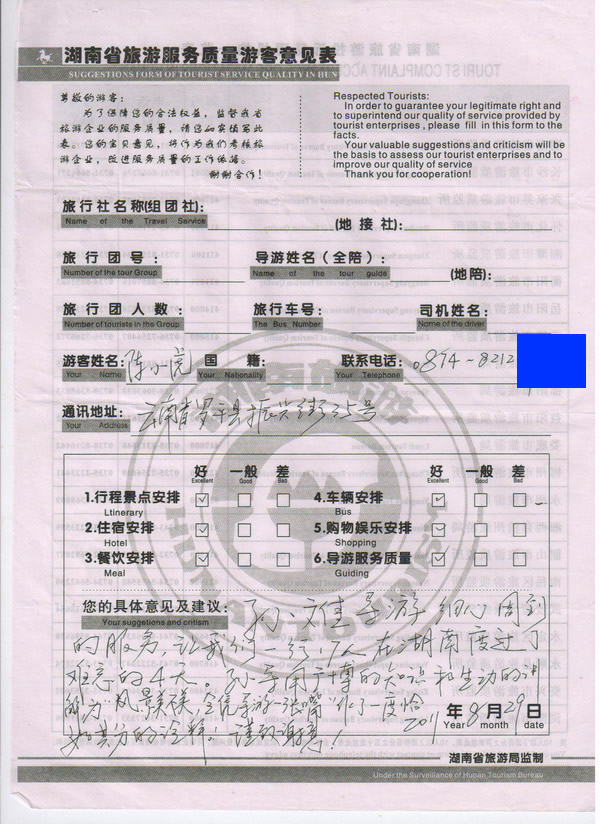 湖南省旅游服务质量游客意见表
SUGGESTIONS FORM OF TOURIST SERVICE QUALITY IN HUN
尊敬的游客:
为了保障您的合法权益,监督我省
旅游企业的服务质量,请您如实填写此
表。您的宝贵意见,将作为我们考核旅
游企业,改进服务质量的工作依据。
谢谢合作!
Respected Tourists:
In order to guarantee your legitimate right and
to superintend our quality of service provided by
tourist enterprises , please fill in this form to the
facts.
Your valuable suggestions and criticism will be
the basis to assess our tourist enterprises and to
improve our quality of service
Thank you for cooperation!
旅行社名称(组团社): (地接社):
Name of the Travel Service
旅行团号: 导游姓名(全陪): (地陪):
Number of the tour Group Name of the tour guide
旅行团人数: 旅行车号: 司机姓名:
Number of tourists in the Group The Bus Number Name of the driver
游客姓名: 陈小 国籍: 联系电话: 0874-8212
Your Name Your Nationality Your Telephone
通讯地址: 云南省罗平县振兴街25号
Your Address
好 一般 差 好 一般 差
Excellent Good Bad Excellent Good Bad
1.行程景点安排 4.车辆安排
Ltinerary Bus
2.住宿安排 5.购物娱乐安排
Hotel Shopping
3.餐饮安排 6.导游服务质量
Meal Guiding
您的具体意见及建议: 孙文佳导游细心周到
Your suggetions and critism
的服务,让我们一行17人在湖南度过了
难忘的4天。孙导用广博的知识和生动的讲
解为"风景美不美,全凭导游一张嘴"作了一度恰
如其分的诠释!谨致谢意!
2011年8月29日
Year month date
湖南省旅游局监制
Under the Surveillance of Hunan Tourism Bureau